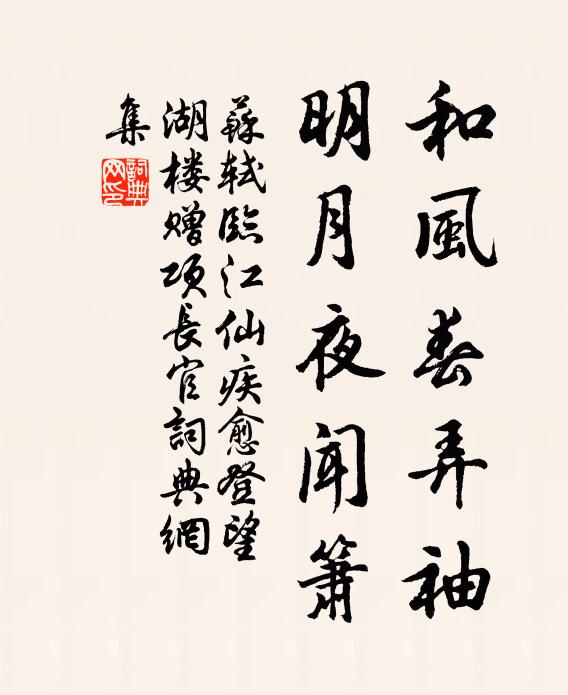 和風春弄袖
明月夜闻箫
蘇軾臨江仙疾愈登望
湖楼贈项長官詞典網
集
詞典網印